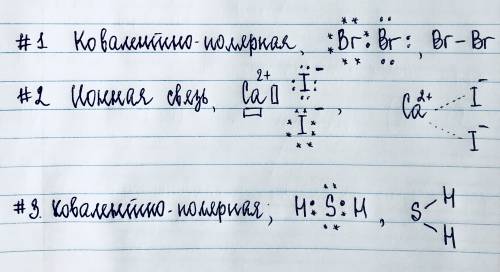 #1 Ковалентно-полярная, Br Br, Br – Br
#2 Ионная связь, Ca²⁺ I⁻ I⁻, Ca²⁺ I⁻ I⁻
#3. Ковалентно-полярная; H:S:H, S H H